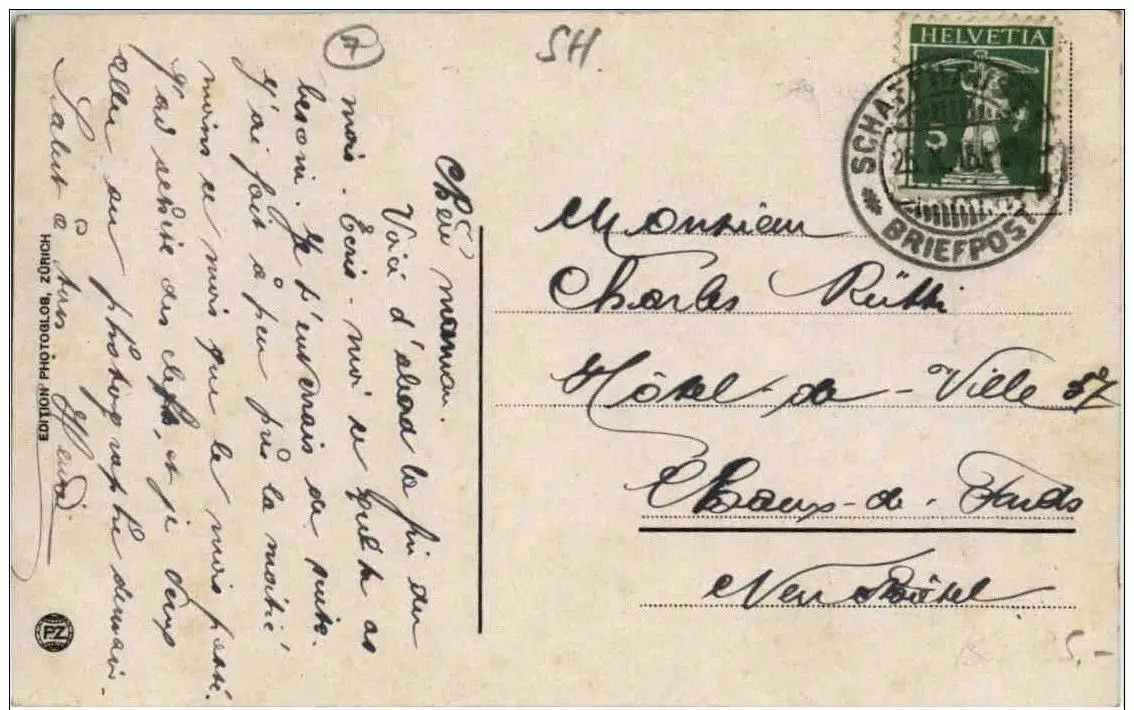 SH.
HELVETIA
5
SCHAFFHAUSEN
BRIEFPOST
Monsieur
Charles Rütti
Hôtel-de-Ville 57
Chaux-de-Fonds
Neuchâtel
5.-
Chère maman.
Voici d'abord la fin du
mois. Ecris-moi ce que tu as
besoin. Je t'enverrais de suite.
J'ai fait à peu près la moitié
moins ce mois que le mois passé.
J'ai acheté des et je veux
aller au photographe demain.
Salut à tous Henri
EDITION PHOTOGLOB, ZÜRICH
PZ